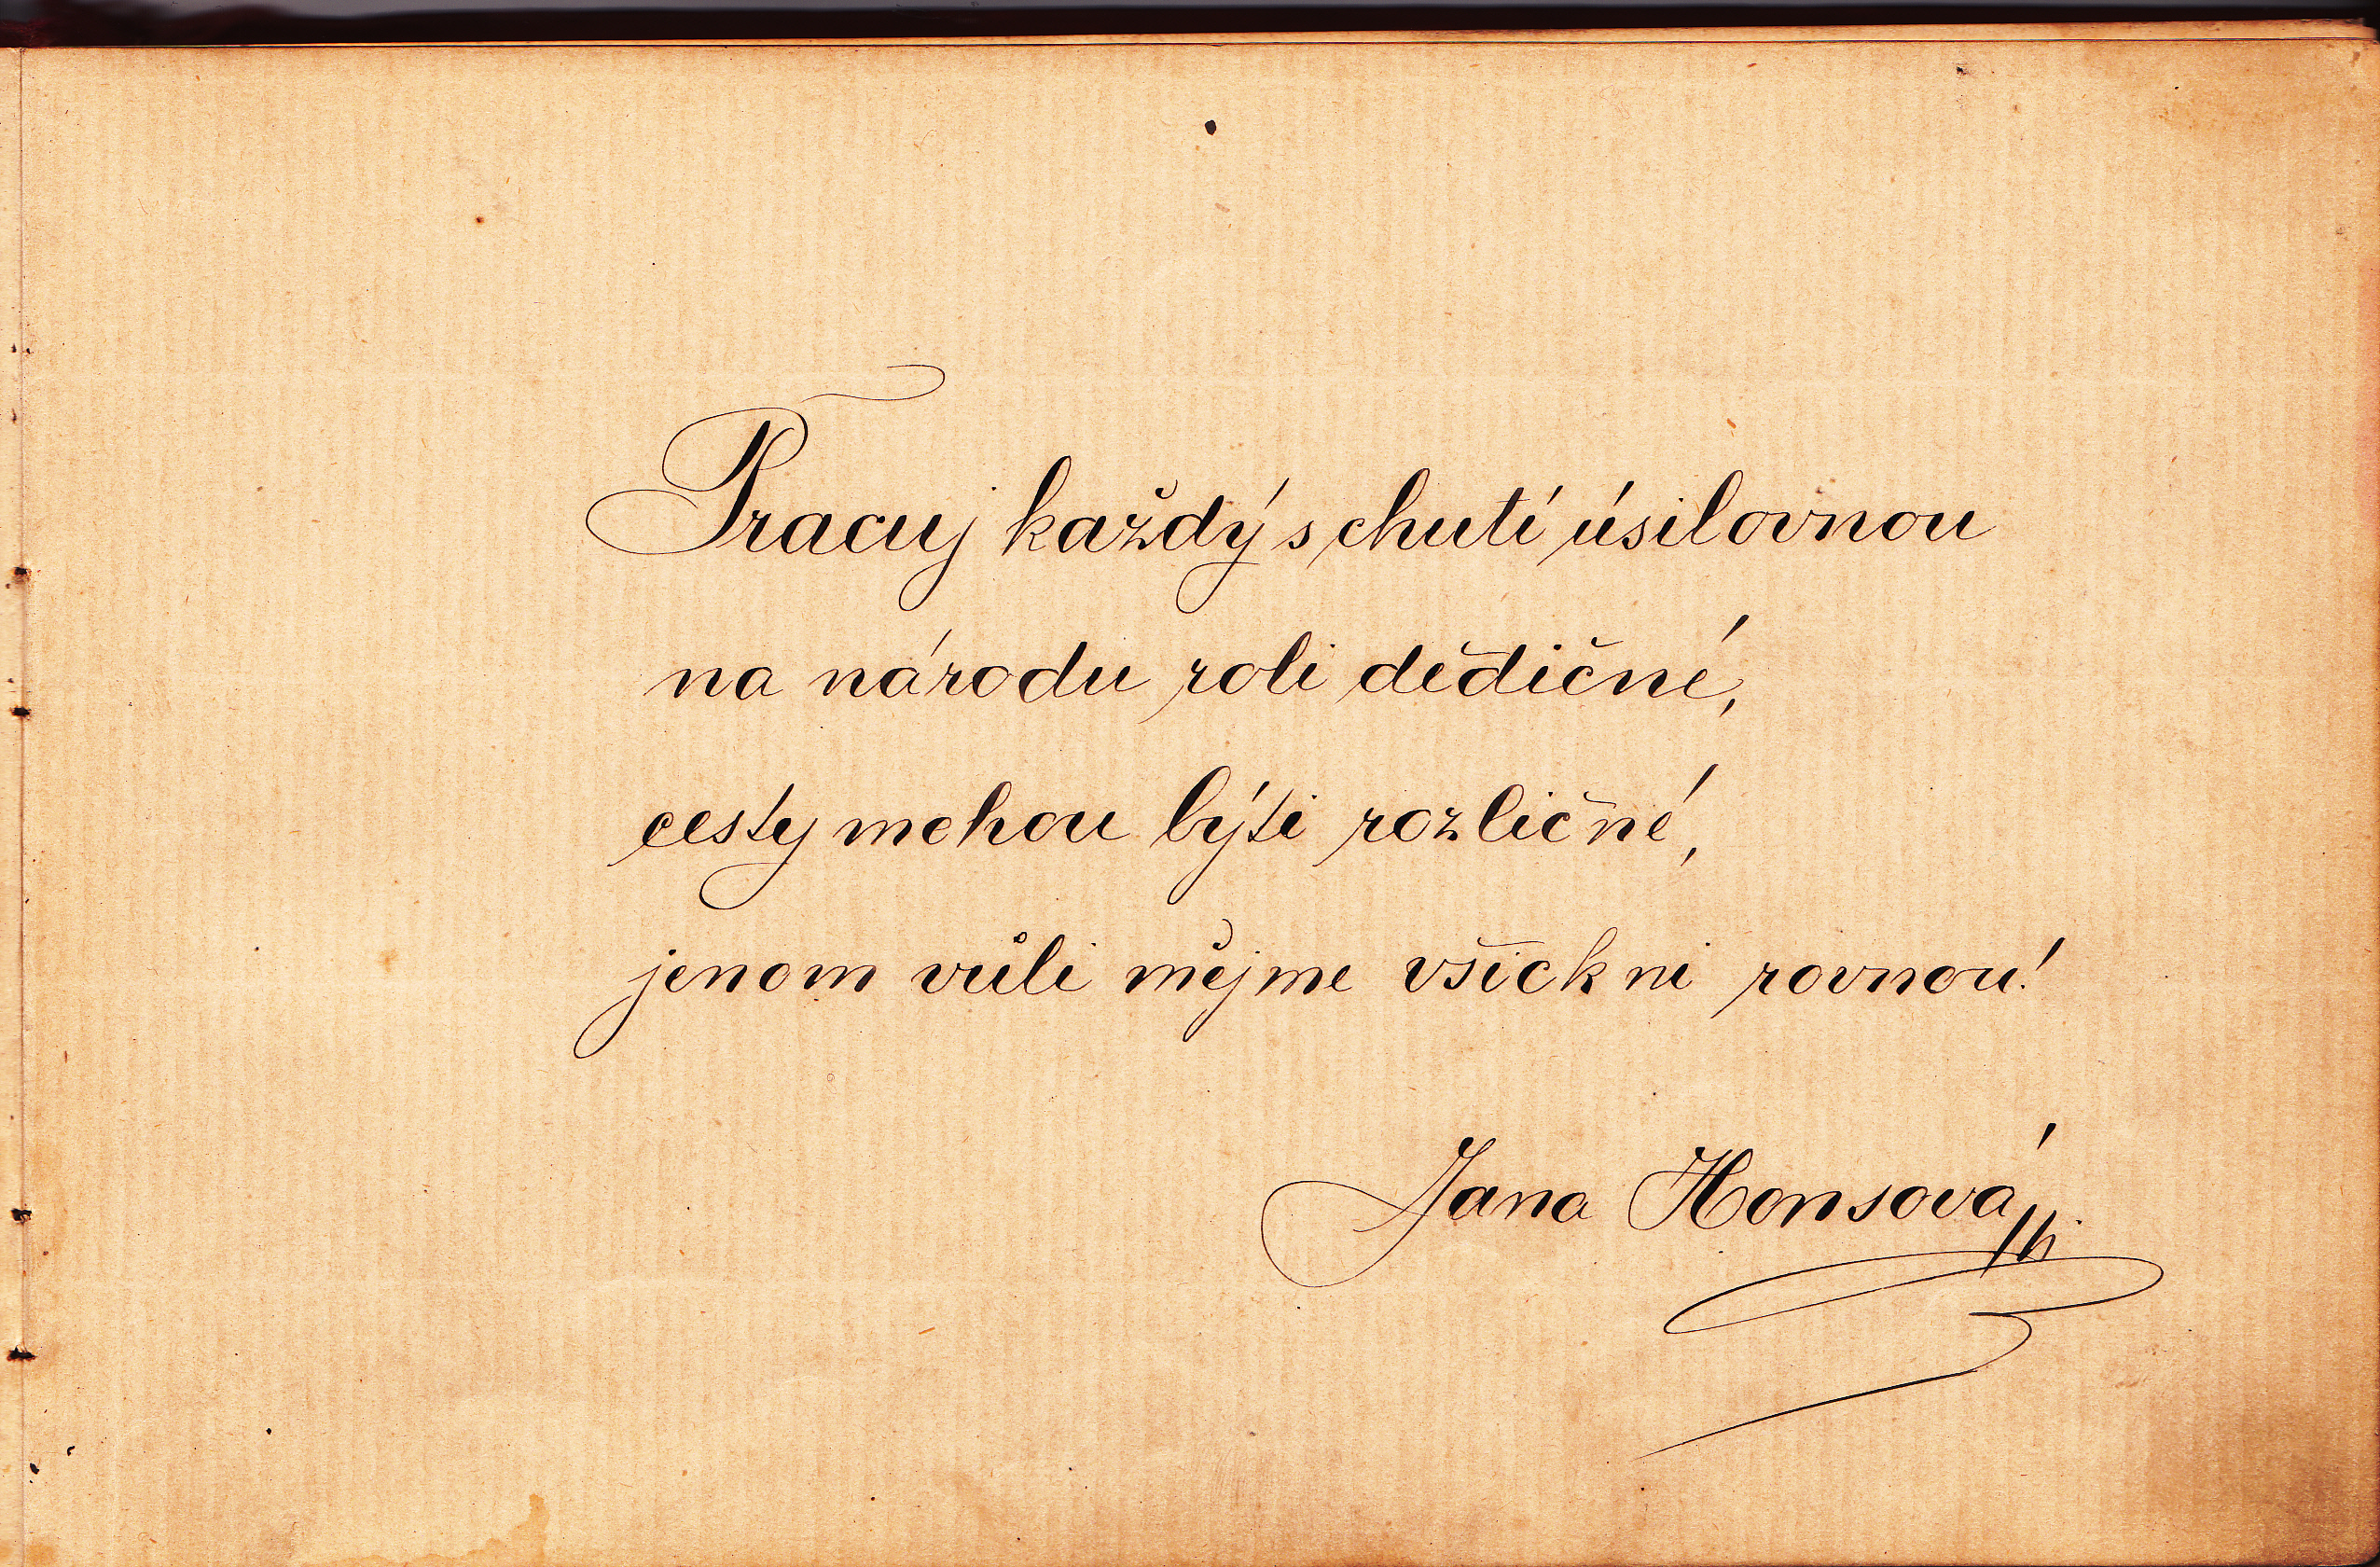 Pracuj každý s chutí úsilovnou
na národu roli dědičné,
cesty mohou býti rozličné,
jenom vůli mějme všickni rovnou!
Jana Honsová